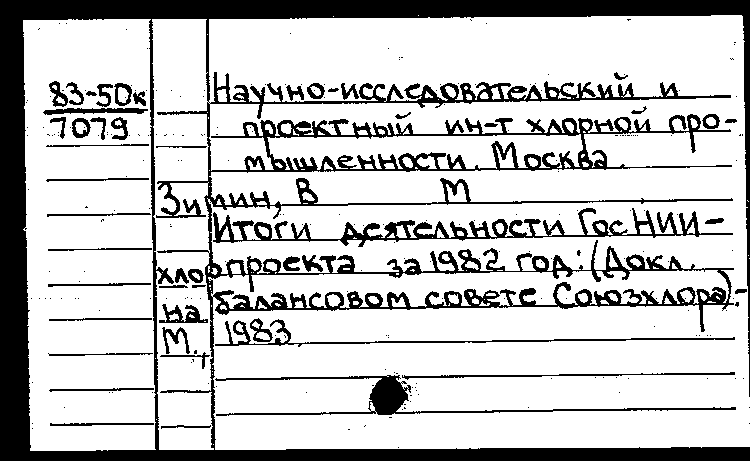 83-50к
7079
Научно-исследовательский и
проектный ин-т хлорной про-
мышленности. Москва.
Зимин, В М
Итоги деятельности ГосНИИ-
хлорпроекта за 1982 год: (Докл.
на балансовом совете Союзхлора).-
М., 1983